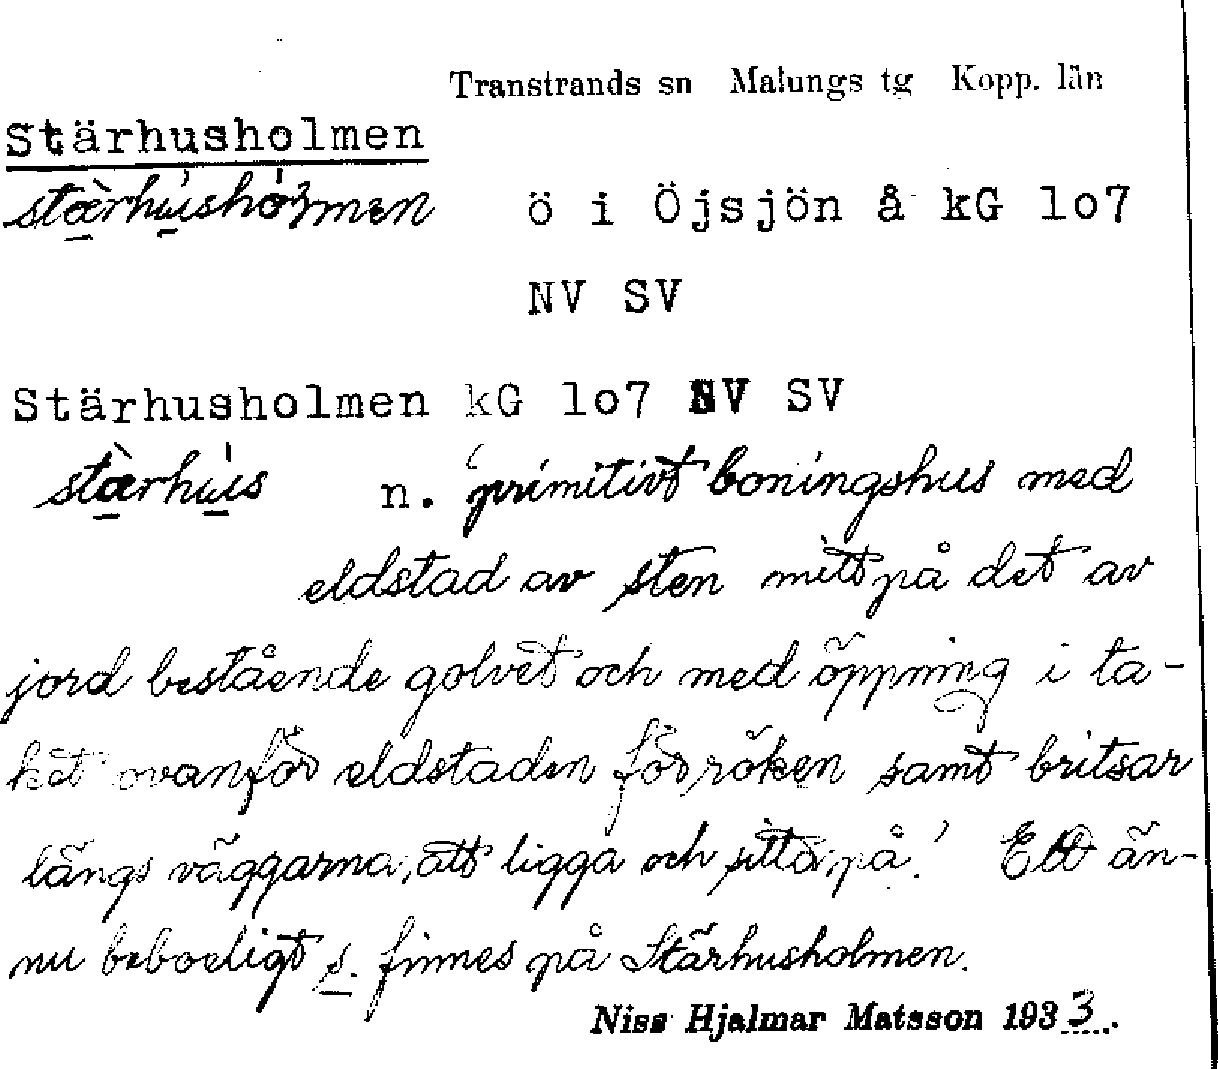 Transtrands sn Malungs tg Kopp. län
Stärhusholmen
stærhushoɽmen ö i Öjsjön å kG 1o7
NV SV
Stärhusholmen kG 1o7 NV SV
stærhus n. 'primitivt boningshus med
eldstad av sten mitt på det av
jord bestående golvet och med öppning i ta-
ket ovanför eldstaden för röken samt britsar
längs väggarna, att ligga och sitta på.' Ett än-
nu beboeligt s. finnes på Stärhusholmen.
Niss Hjalmar Matsson 1933.